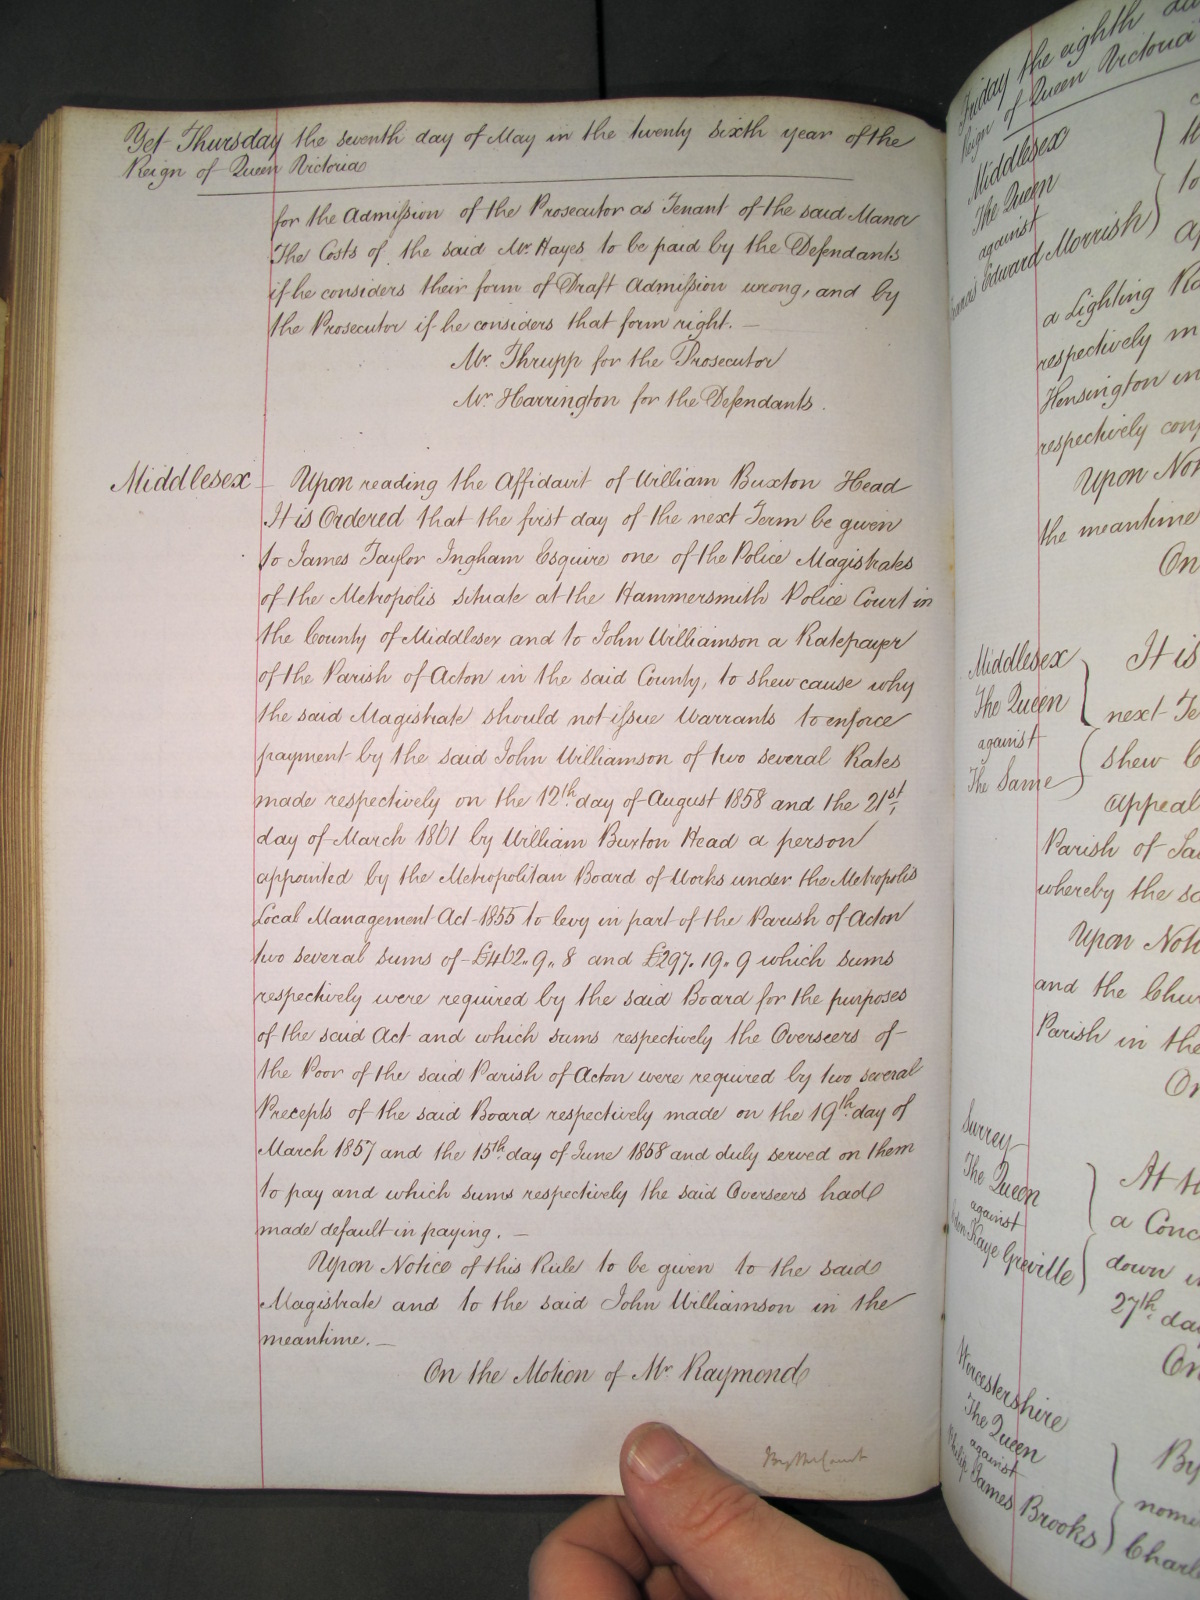 Yet Thursday the seventh day of May in the twenty sixth year of the
Reign of Queen Victoria
for the Admission of the Prosecutor as Tenant of the said Manor
The Costs of the said Mr. Hayes to be paid by the Defendants
if he considers their form of Draft Admission wrong, and by
the Prosecutor if he considers that form right. —
Mr. Thrupp for the Prosecutor
Mr. Harrington for the Defendants.
Middlesex — Upon reading the Affidavit of William Buxton Head
It is Ordered that the first day of the next Term be given
to James Taylor Ingham Esquire one of the Police Magistrates
of the Metropolis situate at the Hammersmith Police Court in
the County of Middlesex and to John Williamson a Ratepayer
of the Parish of Acton in the said County, to shew cause why
the said Magistrate should not issue Warrants to enforce
payment by the said John Williamson of two several Rates
made respectively on the 12th. day of August 1858 and the 21st,
day of March 1861 by William Buxton Head a person
appointed by the Metropolitan Board of Works under the Metropolis
Local Management Act 1855 to levy in part of the Parish of Acton
two several sums of £462„9„8 and £297.19„9 which sums
respectively were required by the said Board for the purposes
of the said Act and which sums respectively the Overseers of
the Poor of the said Parish of Acton were required by two several
Precepts of the said Board respectively made on the 19th. day of
March 1857 and the 15th. day of June 1858 and duly served on them
to pay and which sums respectively the said Overseers had
made default in paying. —
Upon Notice of this Rule to be given to the said
Magistrate and to the said John Williamson in the
meantime. —
On the Motion of Mr Raymond
By the Court
Friday the eighth
Reign of Queen Victoria
Middlesex
The Queen
against
Edward Morrish
a Lighting
respectively
Kensington in
respectively
Upon Not
the meantime
On
Middlesex
The Queen
against
The Same
It is
next Te
shew C
Appeal
Parish of
whereby the
Upon Noti
and the Chur
Parish in the
On
Surrey
The Queen
against
Kaye Greville
At th
a Conc
down
27th. day
On
Worcestershire
The Queen
against
Philip James Brooks
By
nomi
Charl